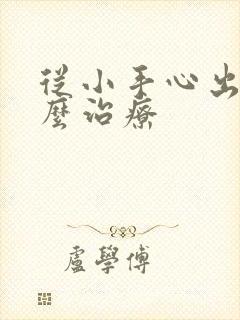 從小手心出
麼治療
盧學傅